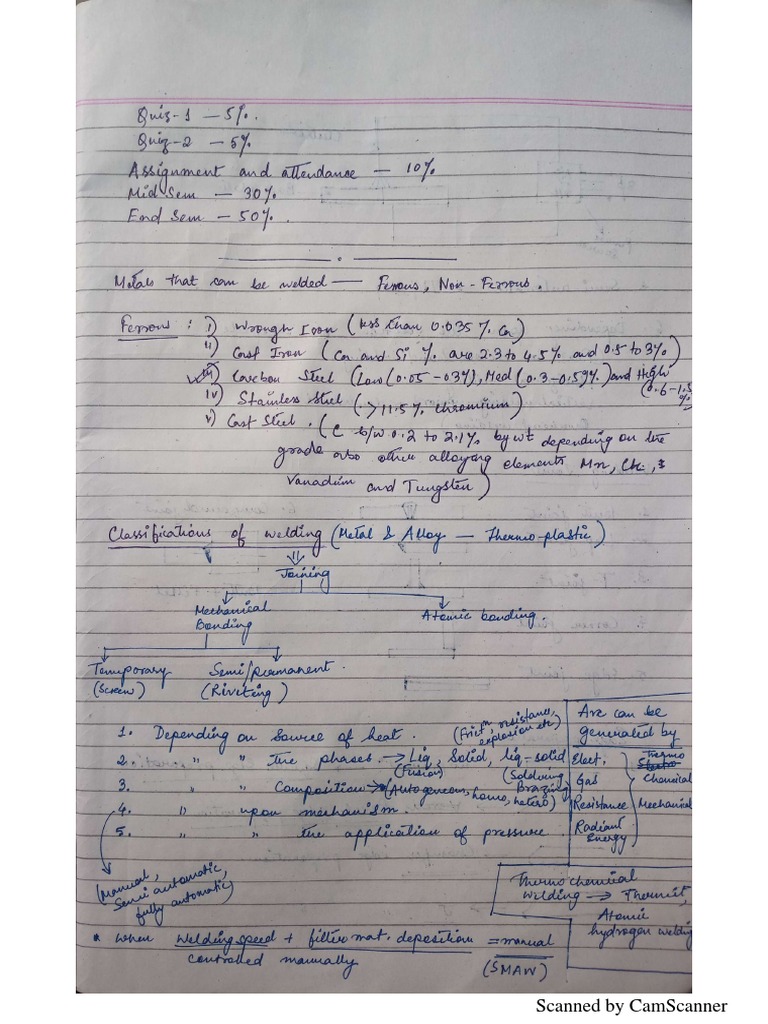 Quiz-1 — 5%.
Quiz-2 — 5%
Assignment and attendance — 10%
Mid Sem — 30%
End Sem — 50%.
Metals that can be welded — Ferrous, Non-Ferrous.
Ferrous : i) Wrough Iron (less than 0.035% Ca)
ii) Cast Iron (Ca and Si % are 2.3 to 4.5% and 0.5 to 3%)
iii) Carbon Steel (Low (0.05-03%), Med (0.3-0.59%) and High
(0.6-1.5
%)
iv) Stainless Steel (>11.5% chromium)
v) Cast Steel. (C b/w 0.2 to 2.1% by wt depending on the
grade also other alloying elements Mn, Ch.,
Vanadium and Tungsten)
Classifications of welding (Metal & Alloy — Thermo-plastic)
Joining
Mechanical
Bonding
Atomic bonding.
Temporary
(Screw)
Semi/permanent.
(Riveting)
1. Depending on Source of heat. (Frictn, resistance,
explosion etc)
2. " " the phases → Liq, Solid, liq-solid
(Fusion) (Soldering
Brazing)
3. " " Composition → (Autogeneous, homo, hetero)
4. " upon mechanism.
5. " " the application of pressure.
(Manual,
Semi automatic,
fully automatic)
Arc can be
generated by
Elect.
Gas
Resistance
Radiant
Energy
Thermo
Electro
Chemical
Mechanical
Thermo chemical
welding → Thermit,
Atomic
hydrogen welding
* When welding speed + filler mat. deposition = manual
controlled manually (SMAW)